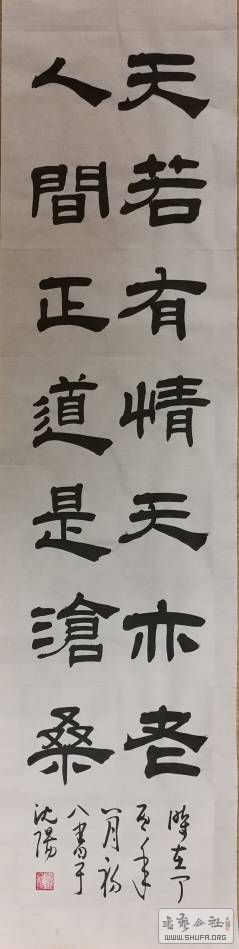 天若有情天亦老
人間正道是滄桑
時在丁
年
八月初
八書于
沈陽
书艺公社
WWW.SHUFA.ORG